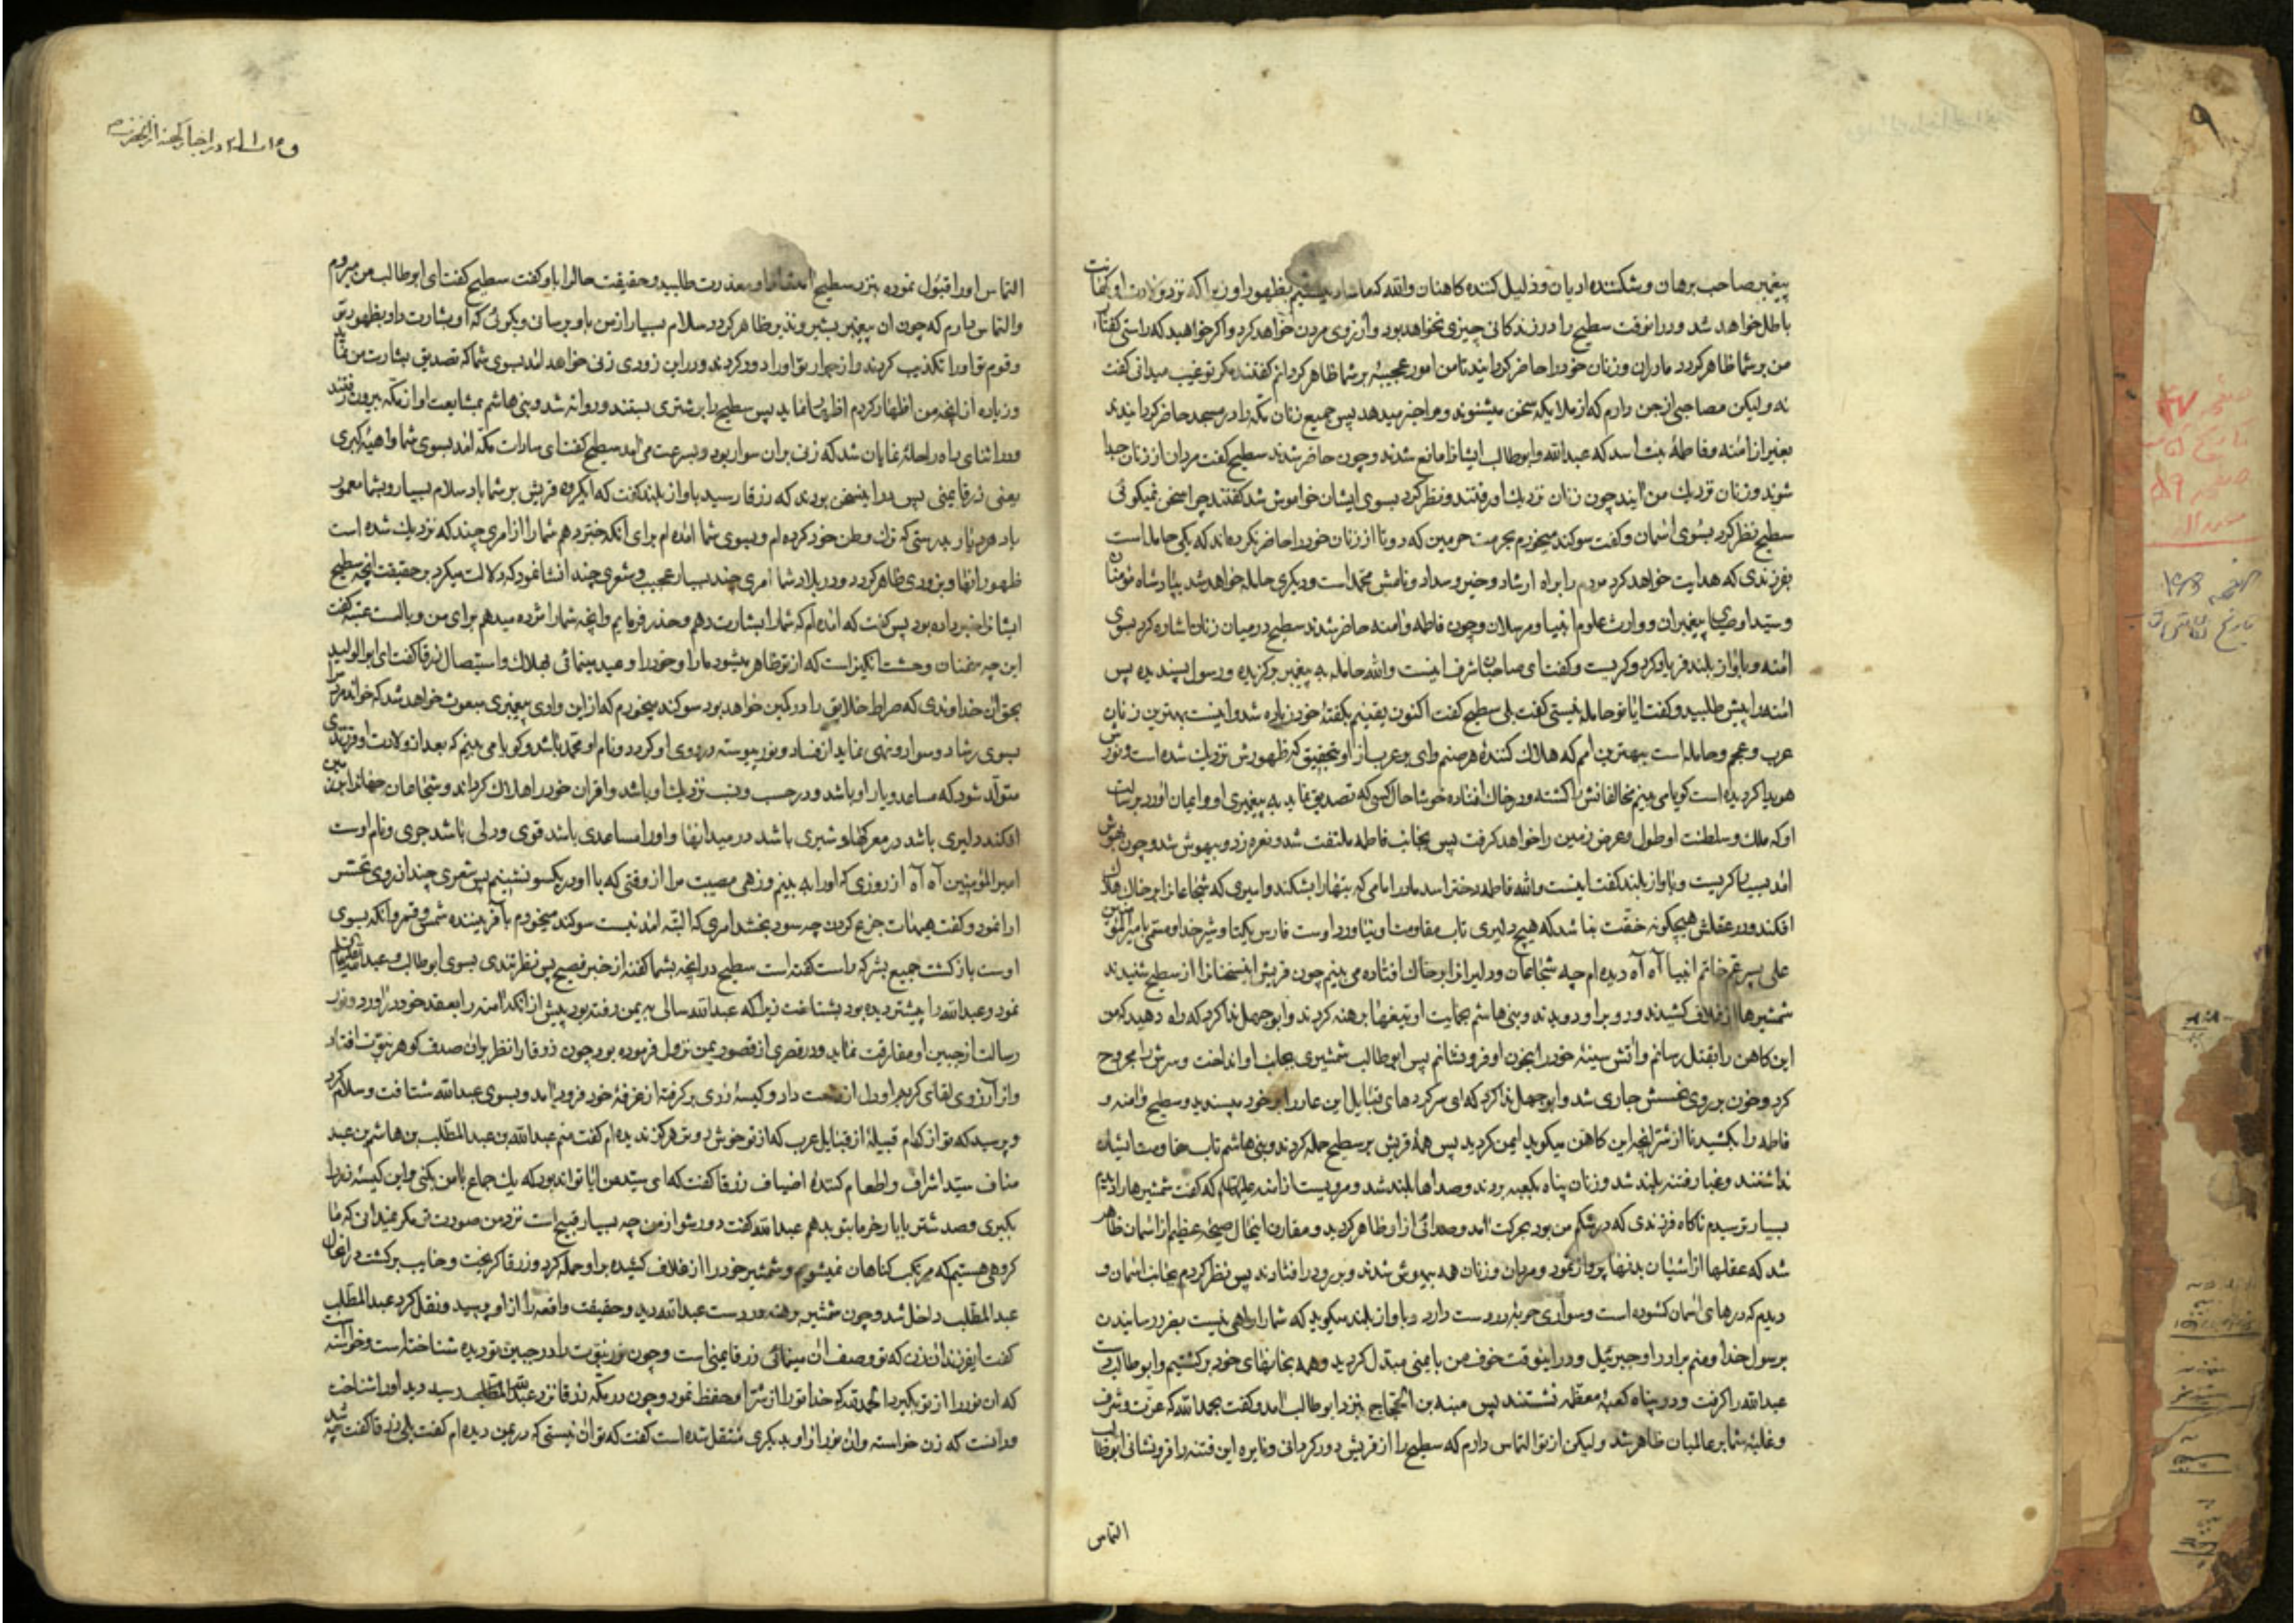 پیغمبر صاحب برهان و شکننده ادیان و ذلیل کننده کاهنان والله که ما شاد بظهور او زیرا که نزد ولادت او کهانت
باطل خواهد شد و در انوقت سطیح را در زندکانی چیزی نخواهد بود و ارزوی مردن خواهد کرد و اکر خواهید که راستی کفتار
من بر شما ظاهر کردد مادران و زنان خود را حاضر کردانید تا من امور عجیبه بر شما ظاهر کردانم کفتند مکر تو غیب میدانی کفت
نه ولیکن مصاحبی از جن دارم که از ملایکه سخن میشنود و مرا خبر میدهد پس جمیع زنان مکه را در مسجد حاضر کردانیدند
بغیر از امنه و فاطمه بنت اسد که عبدالله و ابوطالب ایشانرا مانع شدند و چون حاضر شدند سطیح کفت مردان از زنان جدا
شوند و زنان نزدیك من ایند چون زنان نزدیك او رفتند و نظر کرد بسوی ایشان خواموش شد کفتند چرا سخن نمیکوئی
سطیح نظر کرد بسوی اسمان و کفت سوکند میخورم بحرمت حرمین که دو تا از زنان خود را حاضر نکرده اند که یکی حامله است
بفرزندی که هدایت خواهد کرد مردم را براه ارشاد و خیر و سداد و نامش محمد است و دیکری حامله خواهد شد بپادشاه مؤمنان
و سید اوصیای پیغمبران و وارث علوم انبیا و مرسلان و چون فاطمه و امنه حاضر شدند سطیح در میان زنان اشاره کرد بسوی
امنه و باواز بلند فریاد کرد و کریست و کفت ای صاحبان شرف اینست والله حامله به پیغمبر برکزیده و رسول پسندیده پس
امنه را پیش طلبید و کفت ایا تو حامله نیستی کفت بلی سطیح کفت اکنون یقینم بکفته خود زیاده شد و اینست بهترین زنان
عرب و عجم و حامله است ببهترین امم که هلاك کننده هر صنم وای بر عرب از او بتحقیق که ظهورش نزدیك شده است و نورش
هویدا کردیده است کویا می بینم مخالفانش را کشته و در خاك افتاده خوشا حال کسی که تصدیق نماید به پیغمبری او و ایمان اورد برسالت
او که ملك و سلطنت او طول و عرض زمین را خواهد کرفت پس بجانب فاطمه ملتفت شد و نعره زد و بیهوش شد و چون بهوش
امد بسیار کریست و باواز بلند کفت اینست والله فاطمه دختر اسد مادر امامی که بتهارا بشکند و امیری که شجاعانرا بر خاك هلاك
افکند و در عقلش هیچکونه خفت نباشد که هیچ دلیری تاب مقاومت او نیاورد اوست فارس یکتا و شیر خدا و مسمی بامیرالمؤمنین
علی پسر عم خاتم انبیا آه آه دیده ام چه شجاعان و دلیرانرا بر خاك افتاده می بینم چون قریش اینسخنانرا از سطیح شنیدند
شمشیرها از غلاف کشیدند و رو بر او دویدند و بنی هاشم بحمایت او تیغها برهنه کردند و ابوجهل ندا کرد که راه دهید که من
این کاهن را بقتل رسانم و آتش سینه خود را بخون او فرو نشانم پس ابوطالب شمشیری بجانب او انداخت و سرش را مجروح
کرد و خون بر روی نحسش جاری شد و ابوجهل ندا کرد که ای سرکردهای قبایل این عار را بر خود مپسندید و سطیح و امنه و
فاطمه را بکشید تا از شر انچه این کاهن میکوید ایمن کردید پس همه قریش بر سطیح حمله کردند و بنی هاشم تاب مقاومت ایشان
نداشتند و غبار فتنه بلند شد و زنان پناه بکعبه بردند و صداها بلند شد و مرویست از امنه علیها السلام که کفت شمشیرها را دیدم
بسیار ترسیدم ناکاه فرزندی که در شکم من بود بحرکت امد و صدائی از او ظاهر کردید و مقارن اینحال صیحه عظیم از اسمان ظاهر
شد که عقلها از اشیان بدنها پرواز نمود و مردان و زنان همه بیهوش شدند و بر رو در افتادند پس نظر کردم بجانب اسمان و
دیدم که درهای اسمان کشوده است و سواری حربه در دست دارد و باواز بلند میکوید که شما را راهی نیست بضرر رسانیدن
برسول خدا و منم برادر او جبرئیل و در اینوقت خوف من بایمنی مبدل کردید و همه بخانهای خود برکشتیم و ابوطالب دست
عبدالله را کرفت و در پناه کعبه معظمه نشستند پس منبه بن الحجاج بنزد ابوطالب امد و کفت بحمدالله که عزت و شرف
و غلبه شما بر عالمیان ظاهر شد ولیکن از تو التماس دارم که سطیح را از قریش دور کردانی و نایره این فتنه را فرو نشانی ابوطالب
التماس
التماس او را قبول نموده بنزد سطیح امد و معذرت طلبید و حقیقت حالرا باو کفت سطیح کفت ای ابوطالب من میروم
والتماس دارم که چون ان پیغمبر بشیر و نذیر ظاهر کردد سلام بسیار از من باو برسانی و بکوئی که او بشارت داد بظهور تو
و قوم تو او را تکذیب کردند و از جوار تو او را دور کردند و در این زودی زنی خواهد امد بسوی شما که تصدیق بشارت من نماید
و زیاده از انچه من اظهار کردم اظهار نماید پس سطیح را بر شتری بستند و روانه شد و بنی هاشم بمشایعت او از مکه بیرون رفتند
و در اثنای راه راحله نمایان شد که زنی بران سوار بود و بسرعت می امد سطیح کفت ای سادات مکه امد بسوی شما داهیه کبری
یعنی زرقا یمنی پس در اینسخن بودند که زرقا رسید باواز بلند کفت که ای کروه قریش بر شما باد سلام بسیار و بشما معمور
باد هر دیار بدرستی که ترك وطن خود کرده ام و بسوی شما امده ام برای انکه خبر دهم شما را از امری چند که نزدیك شده است
ظهور انها و بزودی ظاهر کردد در بلاد شما امری چند بسیار عجیب و شعری چند انشا نمود که دلالت میکرد بر حقیقت انچه سطیح
ایشانرا خبر داده بود پس کفت که امده ام که شما را بشارت دهم و حذر فرمایم و انچه شما را مژده میدهم برای من وبالست عتبه کفت
این چه سخنان وحشت انکیز است که از تو ظاهر میشود ما را و خود را وعید مینمائی بهلاك و استیصال زرقا کفت ای ابوالولید
بحق ان خداوندی که صراط خلایق را در کمین خواهد بود سوکند میخورم که از این وادی پیغمبری مبعوث خواهد شد که خواند مردم را
بسوی رشاد و سداد و نهی نماید از فساد و نور پیوسته در روی او کردد و نام او محمد باشد و کویا می بینم که بعد از ولادت او فرزندی
متولد شود که مساعد و یار او باشد و در حسب و نسب نزدیك او باشد و اقران خود را هلاك کرداند و شجاعان جهانرا بر زمین
افکند دلیری باشد در معرکها و شیری باشد در میدانها و او را مساعدی باشد قوی و دلی باشد جری و نام اوست
امیرالمؤمنین آه آه از روزی که او را به بینم و زهی مصیبت مرا از وقتی که با او در یکسو نشینم پس شعری چند از روی تحسر
ادا نمود و کفت هیهات جزع کردن چه سود بخشد امری که البته امدنیست سوکند میخورم بآفریننده شمس و قمر و انکه بسوی
اوست بازکشت جمیع بشر که راست کفته است سطیح در انچه بشما کفته از خبر فصیح پس نظر تندی بسوی ابوطالب و عبدالله
نمود و عبدالله را پیشتر دیده بود بشناخت زیرا که عبدالله سالی به یمن رفته بود پیش از انکه امنه را بعقد خود در اورد و نور
رسالت از جبین او مفارقت نماید و در قصری از قصور یمن نزول فرموده بود چون زرقا را نظر بران صدف کوهر نبوت افتاد
و از آرزوی لقای کریم او دل از دست داد و کیسه زری بر کرفته از غرفه خود فرود امد و بسوی عبدالله شتافت و سلام کرد
و پرسید که تو از کدام قبیله از قبایل عرب که از تو خوش روتر هرکز ندیده ام کفت منم عبدالله بن عبدالمطلب بن هاشم بن عبد
مناف سید اشراف و اطعام کننده اضیاف زرقا کفت که ای سید من ایا تواند بود که یك جماع با من بکنی و این کیسه زر را
بکیری و صد شتر با بار خرما بتو بدهم عبدالله کفت دور شو از من چه بسیار قبیح است نزد من صورت تو مکر نمیدانی که ما
کروهی هستیم که مرتکب کناهان نمیشویم و شمشیر خود را از غلاف کشیده بر او حمله کرد و زرقا کریخت و خایب برکشت در انحال
عبدالمطلب داخل شد و چون شمشیر برهنه در دست عبدالله دید و حقیقت واقعه را از او پرسید و نقل کرد عبدالمطلب
کفت ایفرزند ان زن که تو وصف ان مینمائی زرقا یمنی است و چون نور نبوت را در جبین تو دیده شناخته است و خواسته است
که ان نور را از تو بکیرد الحمدلله که خدا تو را از شر او حفظ نمود و چون در مکه زرقا نزد عبدالله رسید دید او را شناخت
و دانست که زن خواسته و ان نور از او بدیکری منتقل شده است کفت که تو ان نیستی که در یمن دیده ام کفت بلی زرقا کفت چه شد